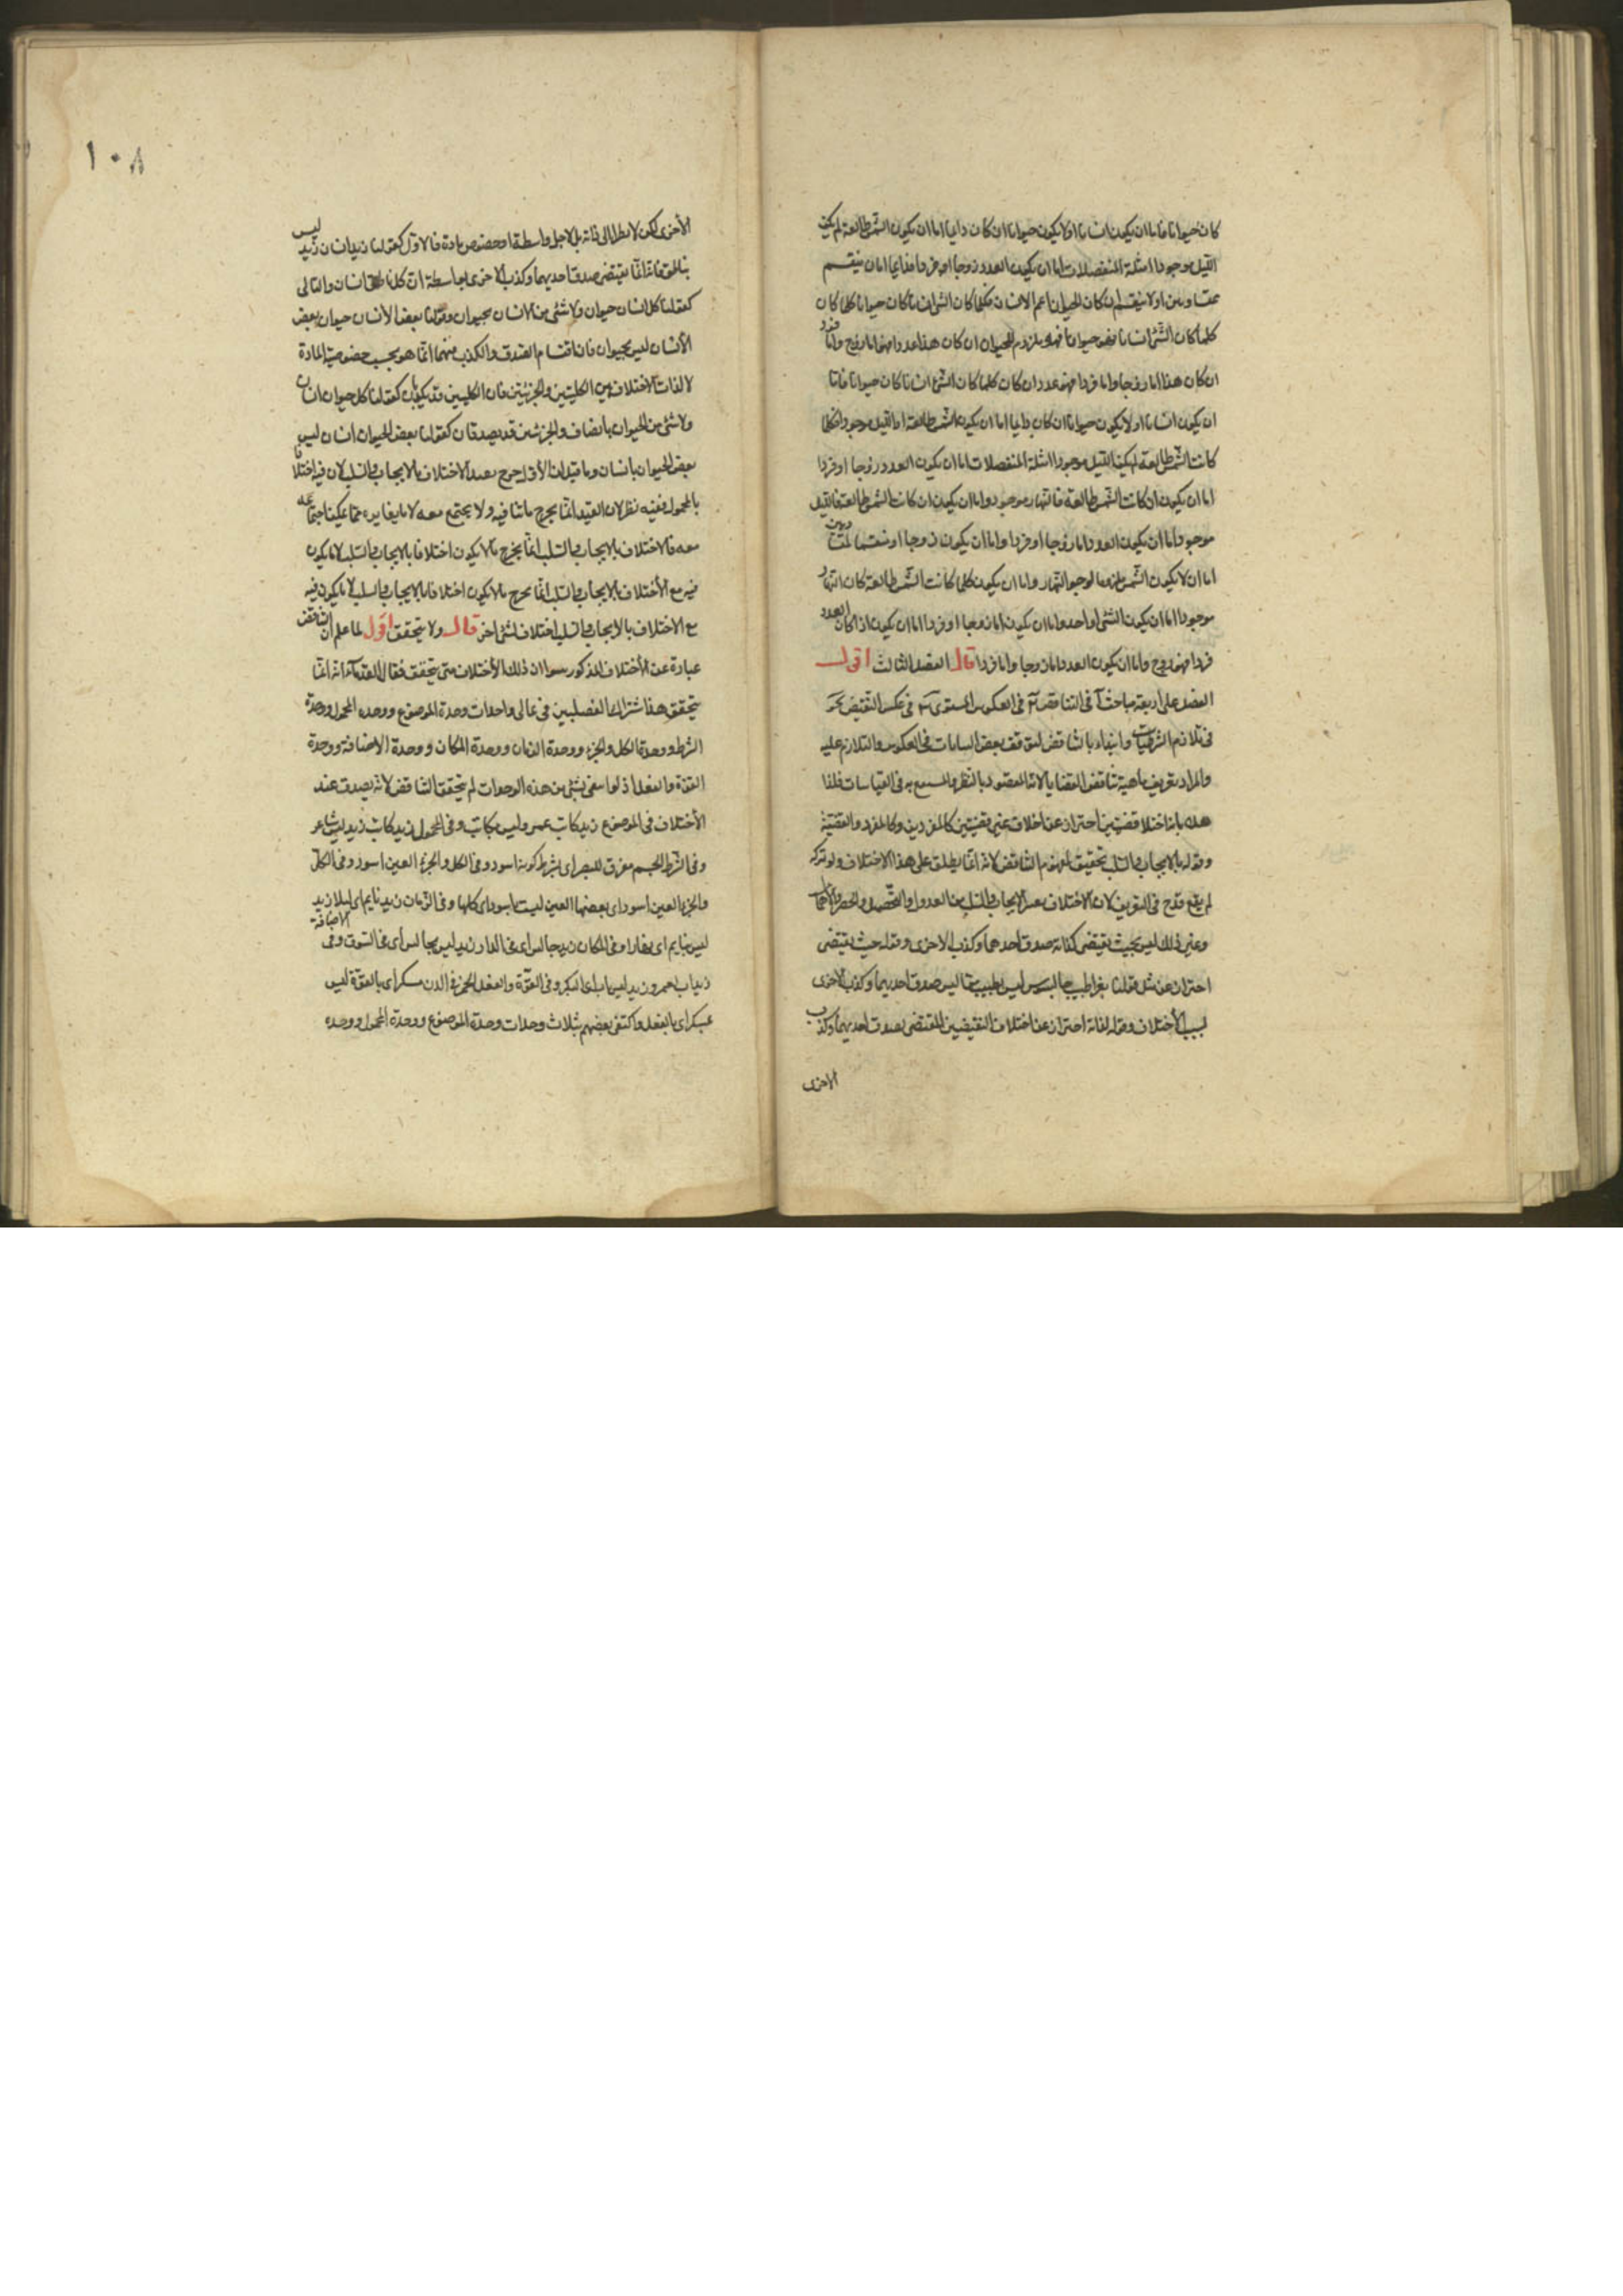 كان حيوانا فاما ان يكون انسانا او لا يكون حيوانا ان كان دايما اما ان يكون الشمس طالعة لم يكن
الليل موجودا امثلة المنفصلات اما ان يكون العدد زوجا او فردا فدايما اما ان ينقسم
بمتساويين او لا ينقسم ان كان الحيوان اعم الانسان فكلما كان الشئ انسانا كان حيوانا كلما كان
كلما كان الشئ انسانا فهو حيوانا فهو ملزوم للحيوان ان كان هذا عددا فهو اما زوج واما فرد
ان كان هذا اما زوجا واما فردا فهو عدد ان كان كلما كان الشئ انسانا كان حيوانا فاما
ان يكون انسانا او لا يكون حيوانا ان كان دايما اما ان يكون الشمس طالعة او الليل موجودا فكلما
كانت الشمس طالعة لم يكن الليل موجودا امثلة المنفصلات اما ان يكون العدد زوجا او فردا
اما ان يكون ان كانت الشمس طالعة فالنهار موجود واما ان يكون ان كانت الشمس طالعة فالليل
موجود اما ان يكون العدد اما زوجا او فردا واما ان يكون زوجا او منقسما لمتساويين
اما ان لا يكون الشمس ملزوما لوجود النهار واما ان يكون كلما كانت الشمس طالعة كان النهار
موجودا اما ان يكون الشئ واحدا واما ان يكون اما زوجا او فردا اما ان يكون اذا كان العدد
فردا فهو زوج واما ان يكون العدد اما زوجا واما فردا قال الفصل الثالث اقول
الفصل على اربعة مباحث آ في التناقض ب في العكس المستوي ج في عكس النقيض د
في تلازم الشرطيات وابتداء بالتناقض لتوقف بعض البيانات في العكوس والتلازم عليه
والمراد تعريف ماهية تناقض القضايا لانه المقصود بالنظر والمستعمل به في القياسات فلذا
حده بانه اختلاف قضيتين احتراز عن اختلاف غير قضيتين كالمفردين وكالمفرد والقضية
وقوله بالايجاب والسلب تحقيق لمفهوم التناقض لانه انما يطلق على هذا الاختلاف ولو تركه
لم يقع قدح في التعريف لان الاختلاف بغير الايجاب والسلب من العدول والتحصيل والحصر والاهمال
وغير ذلك ليس بحيث يقتضي لذاته صدق احدهما وكذب الاخرى وقوله حيث يقتضي
احتراز عن مثل قولنا بقراط طبيب جالينوس ليس بطبيب فانه ليس صدق احديهما وكذب الاخرى
لسبب الاختلاف وقوله لذاته احتراز عن اختلاف النقيضين المقتضي لصدق احديهما وكذب
الاخرى
١٠٨
الأخرى لكن لا نظرا الى ذاته بل لاجل واسطة او خصوص مادة فالاول كقولنا زيد انسان زيد ليس
بناطق فانه انما يقتضي صدق احديهما وكذب الاخرى بواسطة ان كل ناطق انسان والثاني
كقولنا كل انسان حيوان ولا شئ من الانسان بحيوان وقولنا بعض الانسان حيوان بعض
الأنسان ليس بحيوان فان اقتسام الصدق والكذب منهما انما هو بحسب خصوصية المادة
لا لذات الاختلاف بين الكليتين والجزئيتين فان الكليتين قد يكذبان كقولنا كل حيوان انسان
ولا شئ من الحيوان بانسان والجزئيتين قد يصدقان كقولنا بعض الحيوان انسان ليس
بعض الحيوان بانسان وما قيل ان الأول خرج بقيد الاختلاف بالايجاب والسلب لان فيه اختلافا
بالمحمول ففيه نظر لان القيد انما يخرج ما ينافيه ولا يجتمع معه لا ما يغايره مما يمكن اجتماعه
معه فالاختلاف بالايجاب والسلب انما يخرج ما لا يكون اختلافا بالايجاب والسلب لا ما يكون
فيه مع الأختلاف بالايجاب والسلب انما يخرج ما لا يكون اختلافا بالايجاب والسلب لا ما يكون فيه
مع الاختلاف بالايجاب والسلب اختلاف لشئ اخر قال ولا يتحقق اقول لما علم ان التناقض
عبارة عن الأختلاف المذكور سوا ان ذلك الأختلاف متى يتحقق فقال القدماء انه انما
يتحقق هذا شتراك الفصليين في ثماني واحدات وحدة الموضوع ووحده المحمول ووحدة
الشرط ووحدة الكل والجزء ووحدة الزمان ووحدة المكان ووحدة الاضافة ووحدة
القوة والفعل اذ لو انتفى شئ من هذه الوحدات لم يتحقق التناقض لانه يصدق عند
الأختلاف في الموضوع زيد كاتب عمرو ليس بكاتب وفي المحمول زيد كاتب زيد ليس شاعر
وفي الشرط الجسم مفرق للبصر اي بشرط كونه اسود وفي الكل والجزء العين اسود وفي الكل
والجزء العين اسود اي بعضها العين ليست باسود اي كلها وفي الزمان زيد نايم اي ليلا زيد
ليس بنايم اي نهارا وفي المكان زيد جالس اي في الدار زيد ليس بجالس أي في السوق وفي الاضافة
زيد اب لعمرو زيد ليس باب اي لبكر وفي القوة والفعل الخمر في الدن مسكر اي بالقوة ليس
بمسكر اي بالفعل واكتفى بعضهم بثلاث وحدات وحدة الموضوع ووحدة المحمول ووحده